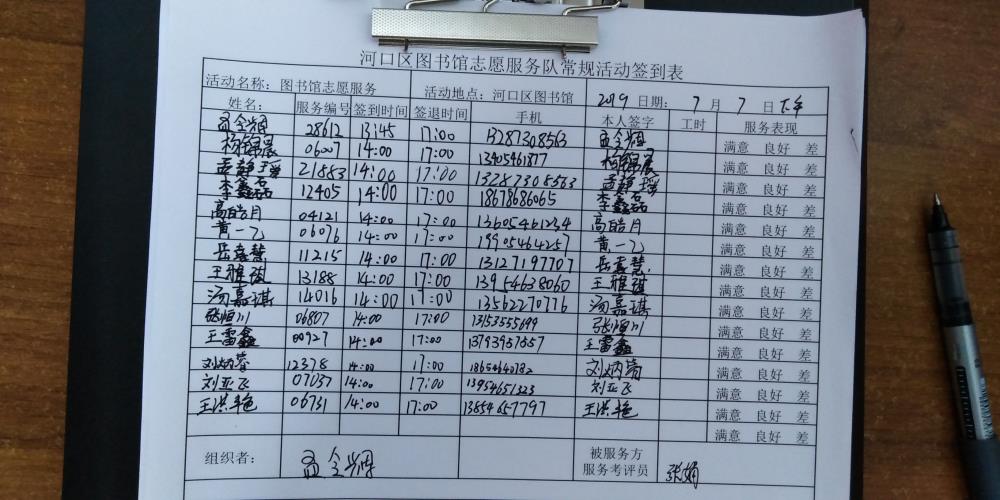 河口区图书馆志愿服务队常规活动签到表
活动名称：图书馆志愿服务 活动地点：河口区图书馆 2019 日期： 7 月 7 日 下午
姓名： 服务编号 签到时间 签退时间 手机 本人签字 工时 服务表现
孟令辉 28612 13:45 17:00 13287308563 孟令辉 满意 良好 差
杨锦晨 06007 14:00 17:00 13905461877 杨锦晨 满意 良好 差
孟静瑶 21883 14:00 17:00 13287308563 孟静瑶 满意 良好 差
李鑫磊 12405 14:00 17:00 18678686065 李鑫磊 满意 良好 差
高皓月 04121 14:00 17:00 13605461234 高皓月 满意 良好 差
黄一飞 06076 14:00 17:00 19905464257 黄一飞 满意 良好 差
岳嘉慧 11215 14:00 17:00 13127197707 岳嘉慧 满意 良好 差
王雅祺 13188 14:00 17:00 13954638060 王雅祺 满意 良好 差
汤嘉琪 14016 14:00 17:00 13562270776 汤嘉琪 满意 良好 差
张恒川 06807 14:00 17:00 13153555699 张恒川 满意 良好 差
王雷鑫 00927 14:00 17:00 王雷鑫 满意 良好 差
刘炳蓉 12378 14:00 17:00 刘炳蓉 满意 良好 差
刘亚飞 07037 14:00 17:00 13954651323 刘亚飞 满意 良好 差
王洪艳 06731 14:00 17:00 13854657797 王洪艳 满意 良好 差
满意 良好 差
组织者： 孟令辉 被服务方
服务考评员 张娟